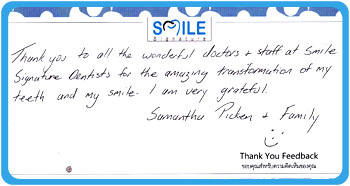 SMILE
Signature
Thank you to all the wonderful doctors + staff at Smile
Signature Dentists for the amazing transformation of my
teeth and my smile. I am very grateful.
Samantha Picken + Family
Thank You Feedback
ขอบคุณสำหรับความคิดเห็นของคุณ